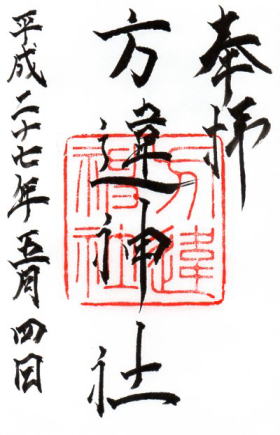 奉拝
方違神社
方違神社
平成二十七年五月四日